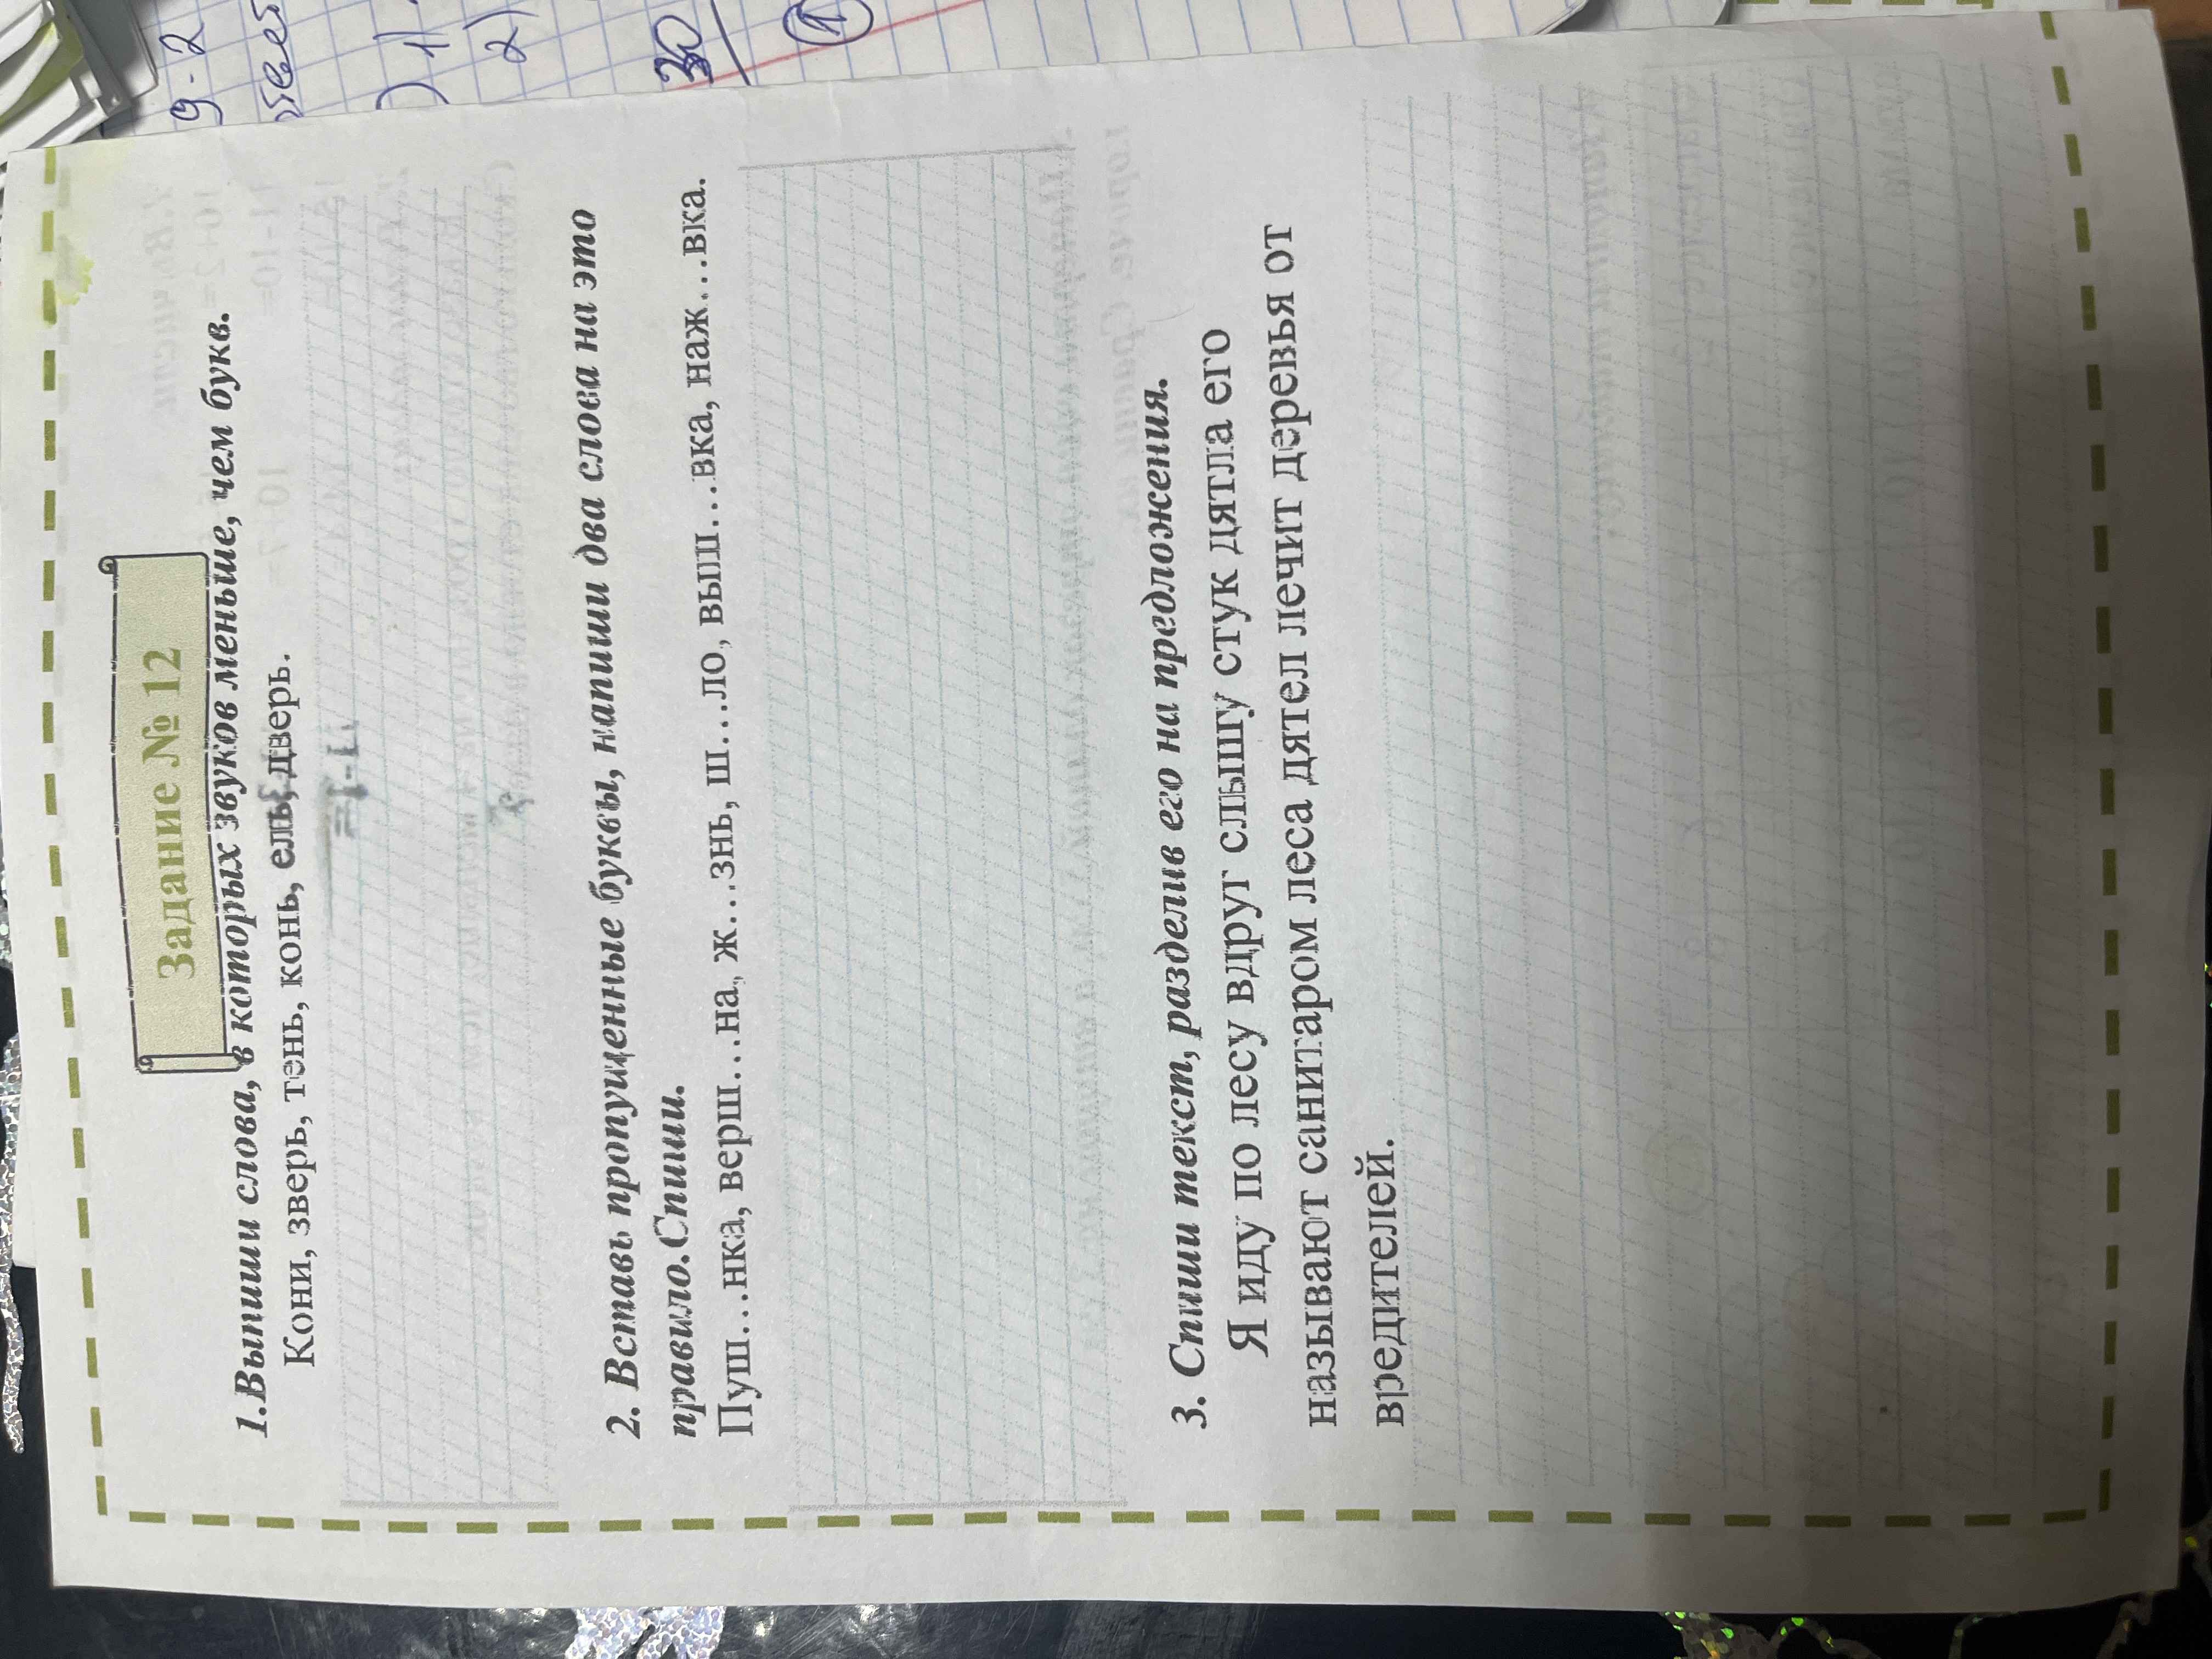 Задание № 12
1.Выпиши слова, в которых звуков меньше, чем букв.
Кони, зверь, тень, конь, ель, дверь.
2. Вставь пропущенные буквы, напиши два слова на это
правило.Спиши.
Пуш…нка, верш…на, ж…знь, ш…ло, выш…вка, наж…вка.
3. Спиши текст, разделив его на предложения.
Я иду по лесу вдруг слышу стук дятла его
называют санитаром леса дятел лечит деревья от
вредителей.
9-2
1)
2)
30